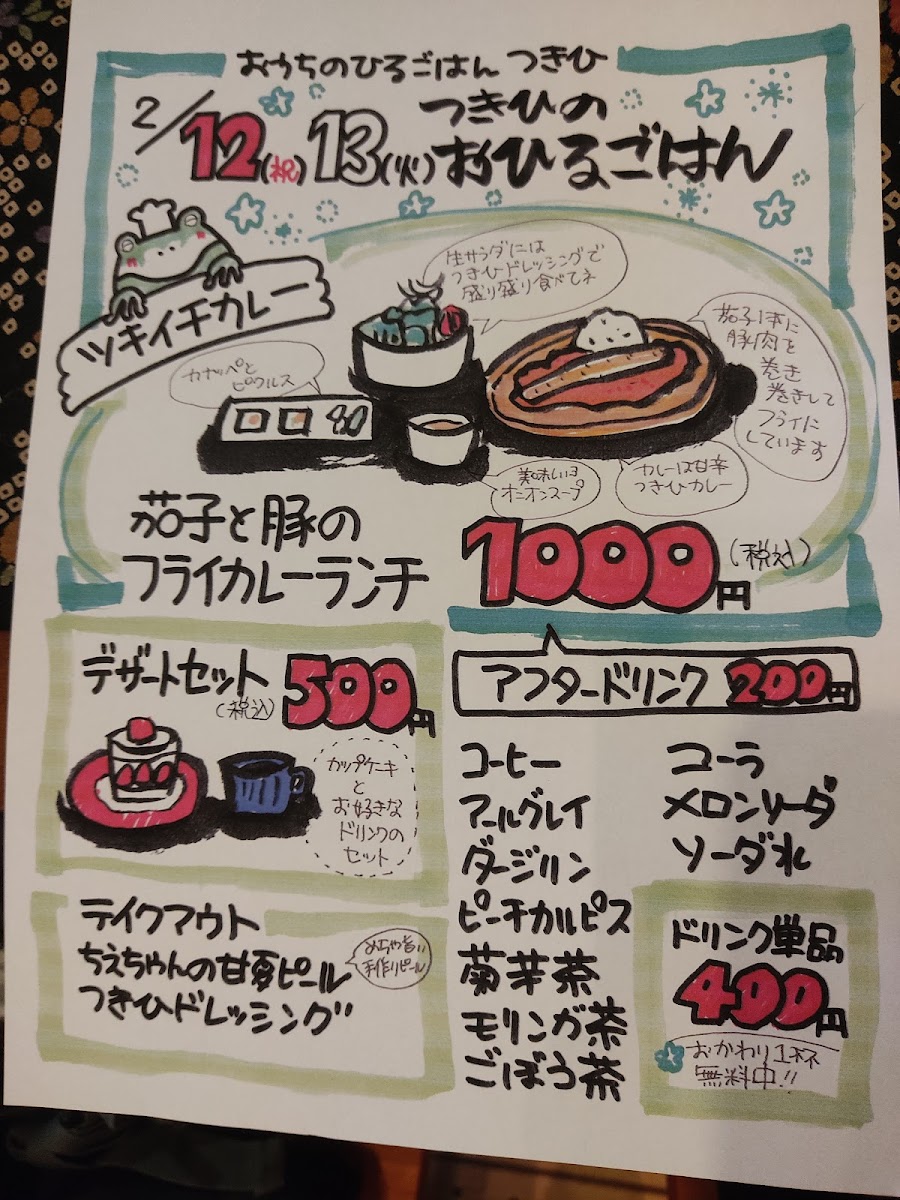 おうちのひるごはん つきひ
2/12(祝)13(火)
つきひの
おひるごはん
ツキイチカレー
生サラダには
つきひドレッシングで
盛り盛り食べてネ
カナッペと
ピクルス
茄子1本に
豚肉を
巻き
巻きして
フライに
しています
美味しいヨ
オニオンスープ
カレーは甘辛
つきひカレー
茄子と豚の
フライカレーランチ
1000円(税込)
デザートセット
(税込)
500円
カップケーキ
と
お好きな
ドリンクの
セット
アフタードリンク 200円
コーヒー
アールグレイ
ダージリン
ピーチカルピス
菊芋茶
モリンガ茶
ごぼう茶
コーラ
メロンソーダ
ソーダ水
テイクアウト
ちえちゃんの甘夏ピール
つきひドレッシング
めちゃ旨い
手作りピール
ドリンク単品
400円
おかわり1杯
無料中!!